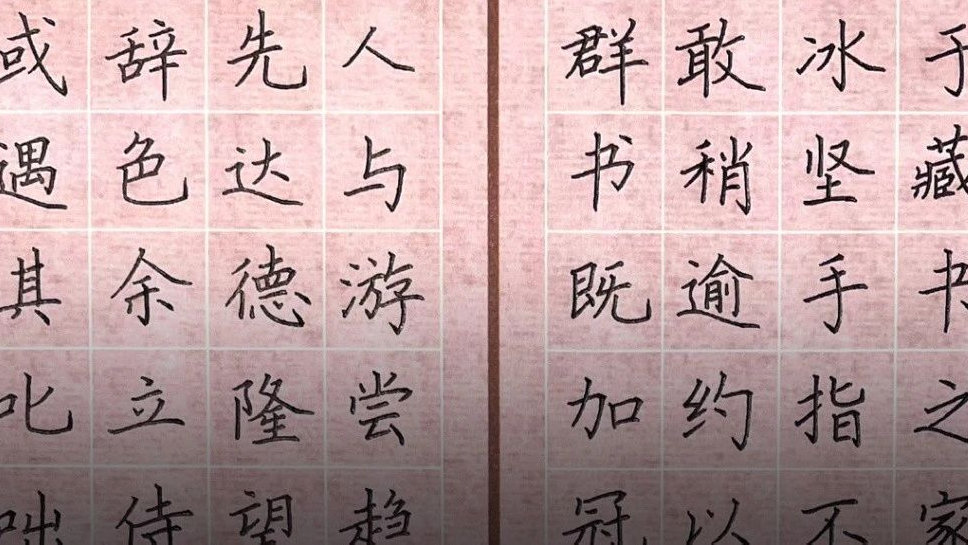 于藏书之家
冰坚手指不
敢稍逾约以
群书既加冠
人与游尝趋
先达德隆望
辞色余立侍
或遇其叱咄